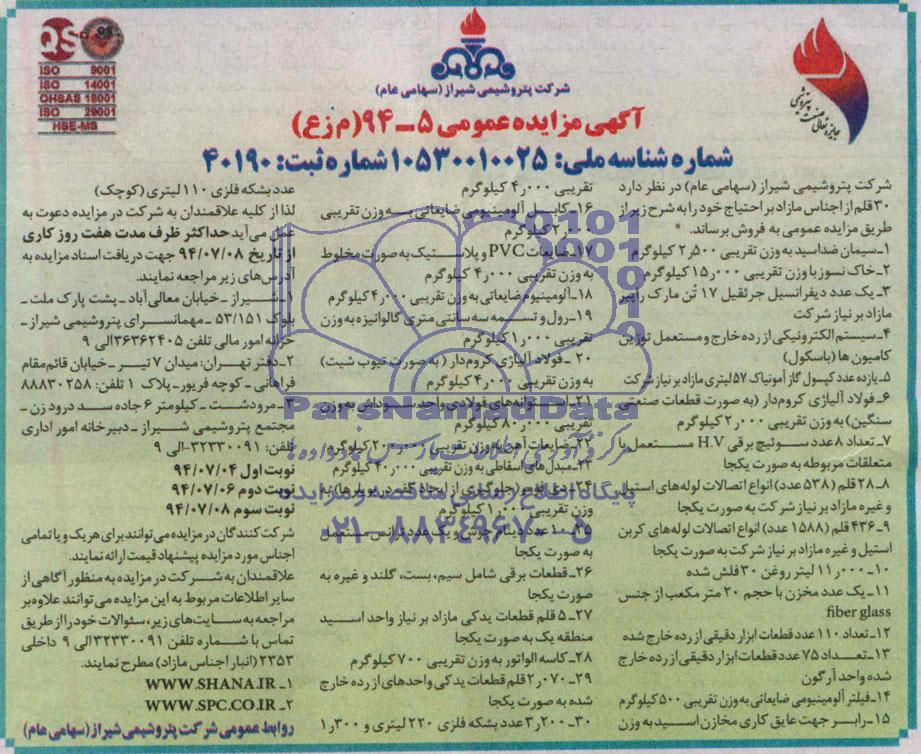 QS
ISO 9001
ISO 14001
OHSAS 18001
ISO 29001
HSE-MS
شرکت پتروشیمی شیراز (سهامی عام)
آگهی مزایده عمومی ۵-۹۴ (م زع)
شماره شناسه ملی: ۱۰۵۳۰۰۱۰۰۲۵ شماره ثبت: ۴۰۱۹۰
شرکت پتروشیمی شیراز (سهامی عام) در نظر دارد
۳۰ قلم از اجناس مازاد بر احتیاج خود را به شرح زیر از
طریق مزایده عمومی به فروش برساند.
۱- سیمان ضد اسید به وزن تقریبی ۲٫۵۰۰ کیلوگرم
۲- خاک نسوز با وزن تقریبی ۱۵٫۰۰۰ کیلوگرم
۳- یک عدد دیفرانسیل جرثقیل ۱۷ تُن مارک راپیر
مازاد بر نیاز شرکت
۴- سیستم الکترونیکی از رده خارج و مستعمل توزین
کامیون ها (باسکول)
۵- یازده عدد کپسول گاز آمونیاک ۵۷ لیتری مازاد بر نیاز شرکت
۶- فولاد آلیاژی کروم دار (به صورت قطعات صنعتی
سنگین) به وزن تقریبی ۲٫۰۰۰ کیلوگرم
۷- تعداد ۸ عدد سوئیچ برقی H.V مستعمل با
متعلقات مربوطه به صورت یکجا
۸- ۲۸ قلم (۵۳۸ عدد) انواع اتصالات لوله های استیل
و غیره مازاد بر نیاز شرکت به صورت یکجا
۹- ۴۳۶ قلم (۱۵۸۸ عدد) انواع اتصالات لوله های کربن
استیل و غیره مازاد بر نیاز شرکت به صورت یکجا
۱۰- ۱۱٫۰۰۰ لیتر روغن ۳۰ فلش شده
۱۱- یک عدد مخزن با حجم ۲۰ متر مکعب از جنس
fiber glass
۱۲- تعداد ۱۱۰ عدد قطعات ابزار دقیقی از رده خارج شده
۱۳- تعداد ۷۵ عدد قطعات ابزار دقیقی از رده خارج
شده واحد آرگون
۱۴- فیلتر آلومینیومی ضایعاتی به وزن تقریبی ۵۰۰ کیلوگرم
۱۵- رابر جهت عایق کاری مخازن اسید به وزن
تقریبی ۴٫۰۰۰ کیلوگرم
۱۶- کابل آلومینیومی ضایعاتی به وزن تقریبی
۲٫۰۰۰ کیلوگرم
۱۷- ضایعات PVC و پلاستیک به صورت مخلوط
به وزن تقریبی ۴٫۰۰۰ کیلوگرم
۱۸- آلومینیوم ضایعاتی به وزن تقریبی ۴٫۰۰۰ کیلوگرم
۱۹- رول و تسمه سه سانتی متری گالوانیزه به وزن
تقریبی ۱٫۰۰۰ کیلوگرم
۲۰- فولاد آلیاژی کروم دار (به صورت تیوب شیت)
به وزن تقریبی ۴٫۰۰۰ کیلوگرم
۲۱- استوانه های فولادی واحد به وزن
تقریبی ۸۰٫۰۰۰ کیلوگرم
۲۲- ضایعات آهن به وزن تقریبی کیلوگرم
۲۳- مبدل های اسقاطی به وزن تقریبی ۴۰٫۰۰۰ کیلوگرم
۲۴- (جلوگیری از ایجاد کف در بویلرها) به
وزن تقریبی ۱٫۰۰۰ کیلوگرم
۲۵- ۱۰ عدد دینام جوش و یک عدد ترانس مستعمل
به صورت یکجا
۲۶- قطعات برقی شامل سیم، بست، گلند و غیره به
صورت یکجا
۲۷- ۵ قلم قطعات یدکی مازاد بر نیاز واحد اسید
منطقه یک به صورت یکجا
۲۸- کاسه الواتور به وزن تقریبی ۷۰۰ کیلوگرم
۲۹- ۲٫۰۷۰ قلم قطعات یدکی واحدهای از رده خارج
شده به صورت یکجا
۳۰- ۳٫۲۰۰ عدد بشکه فلزی ۲۲۰ لیتری و ۱٫۳۰۰
عدد بشکه فلزی ۱۱۰ لیتری (کوچک)
لذا از کلیه علاقمندان به شرکت در مزایده دعوت به
عمل می آید حداکثر ظرف مدت هفت روز کاری
از تاریخ ۹۴/۰۷/۰۸ جهت دریافت اسناد مزایده به
آدرس های زیر مراجعه نمایند.
۱- شیراز - خیابان معالی آباد - پشت پارک ملت -
بلوک ۵۳/۱۵۱ - مهمانسرای پتروشیمی شیراز -
خزانه امور مالی تلفن ۳۶۳۶۲۴۰۵ الی ۹
۲- دفتر تهران: میدان ۷ تیر - خیابان قائم مقام
فراهانی - کوچه فریور - پلاک ۱ تلفن: ۸۸۸۳۰۲۵۸
۳- مرودشت - کیلومتر ۶ جاده سد درود زن -
مجتمع پتروشیمی شیراز - دبیرخانه امور اداری
تلفن: ۳۲۳۳۰۰۹۱ الی ۹
نوبت اول ۹۴/۰۷/۰۴
نوبت دوم ۹۴/۰۷/۰۶
نوبت سوم ۹۴/۰۷/۰۸
شرکت کنندگان در مزایده می توانند برای هر یک و یا تمامی
اجناس مورد مزایده پیشنهاد قیمت ارائه نمایند.
علاقمندان به شرکت در مزایده به منظور آگاهی از
سایر اطلاعات مربوط به این مزایده می توانند علاوه بر
مراجعه به سایت های زیر، سئوالات خود را از طریق
تماس با شماره تلفن ۳۲۳۳۰۰۹۱ الی ۹ داخلی
۲۳۵۳ (انبار اجناس مازاد) مطرح نمایند.
۱- WWW.SHANA.IR
۲- WWW.SPC.CO.IR
روابط عمومی شرکت پتروشیمی شیراز (سهامی عام)
ParsNamadData
پایگاه اطلاع رسانی مناقصه و مزایده
۰۲۱-۸۸۳۴۹۶۷۰-۵